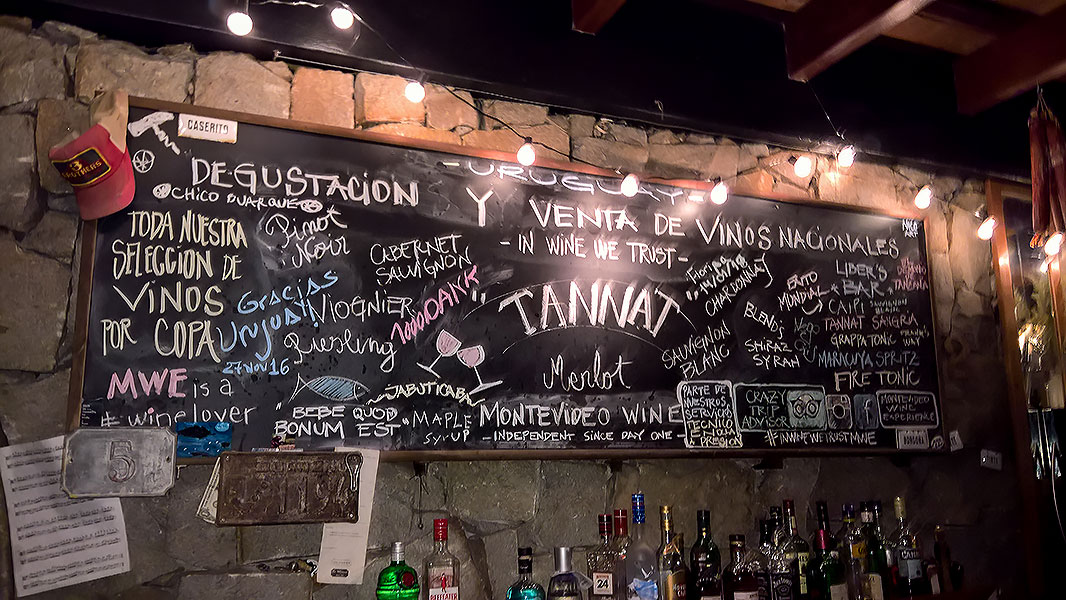 CASERITO
3 BROTHERS
DEGUSTACION
CHICO BUARQUE
- URUGUAY -
Y VENTA DE VINOS NACIONALES
- IN WINE WE TRUST -
TODA NUESTRA
SELECCION DE
VINOS
POR COPA
Pinot
Noir
GRACIAS
URUGUAY!
27 NOV 16
CABERNET
SAUVIGNON
VIOGNIER
Riesling
"TANNAT"
Merlot
CHARDONNAY
SAUVIGNON
BLANC
EXITO
MUNDIAL
BLENDS
SHIRAZ
SYRAH
LIBER'S
BAR
CAIPI SAUVIGNON
TANNAT SANGRIA
GRAPPATONIC
MARACUYA SPRITZ
FIRE TONIC
MWE is a
#winelover
BEBE QUOD
BONUM EST
JABUTICABA
"MAPLE
SYRUP
MONTEVIDEO WINE
- INDEPENDENT SINCE DAY ONE -
PARTE DE
NUESTROS
SERVICIO
TECNICO
CRAZY
TRIP
ADVISOR
f
MONTEVIDEO
WINE
EXPERIENCE
5
BEEFEATER
24